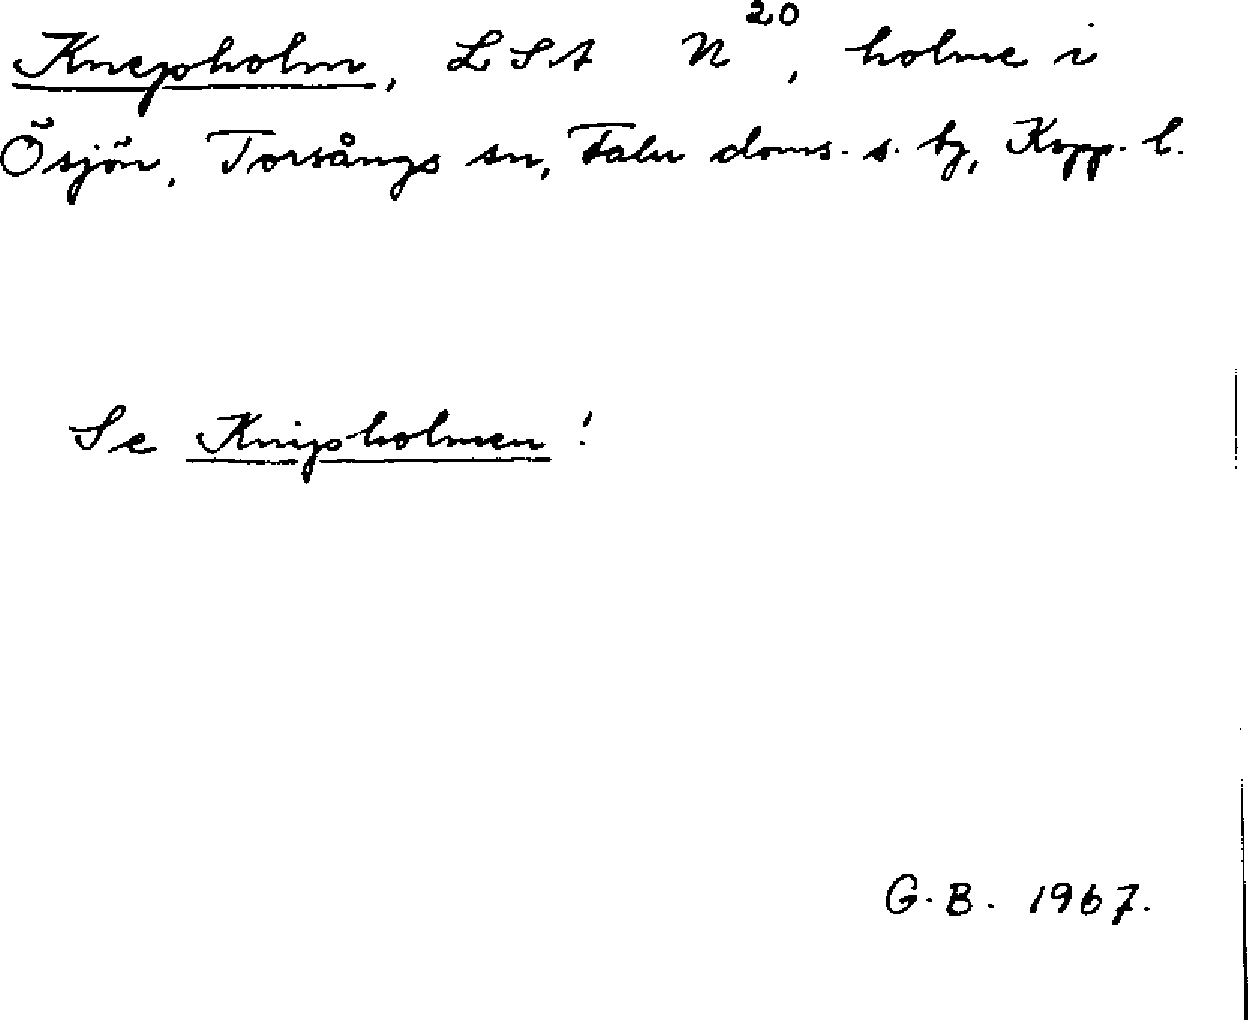 Knepholm, LSA N²⁰, holme i
Ösjön, Torsångs sn, Falu doms. s. tg, Kopp. l.
Se Knipholmen!
G. B. 1967.